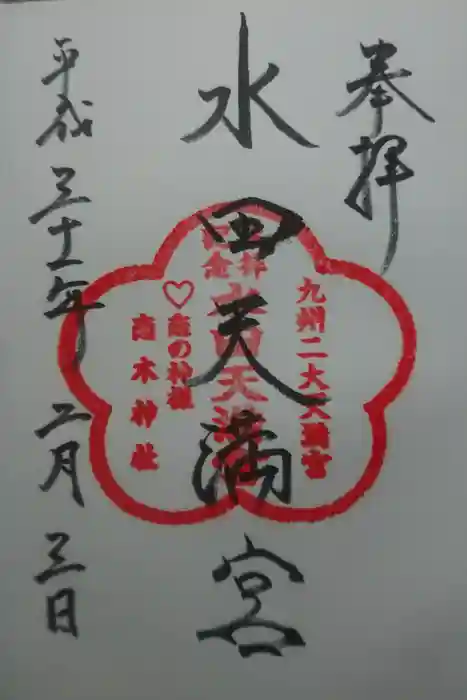 奉拝
水田天満宮
平成三十一年 二月三日
九州二大天満宮
参拝
記念
水田天満宮
♡恋の神様
恋木神社